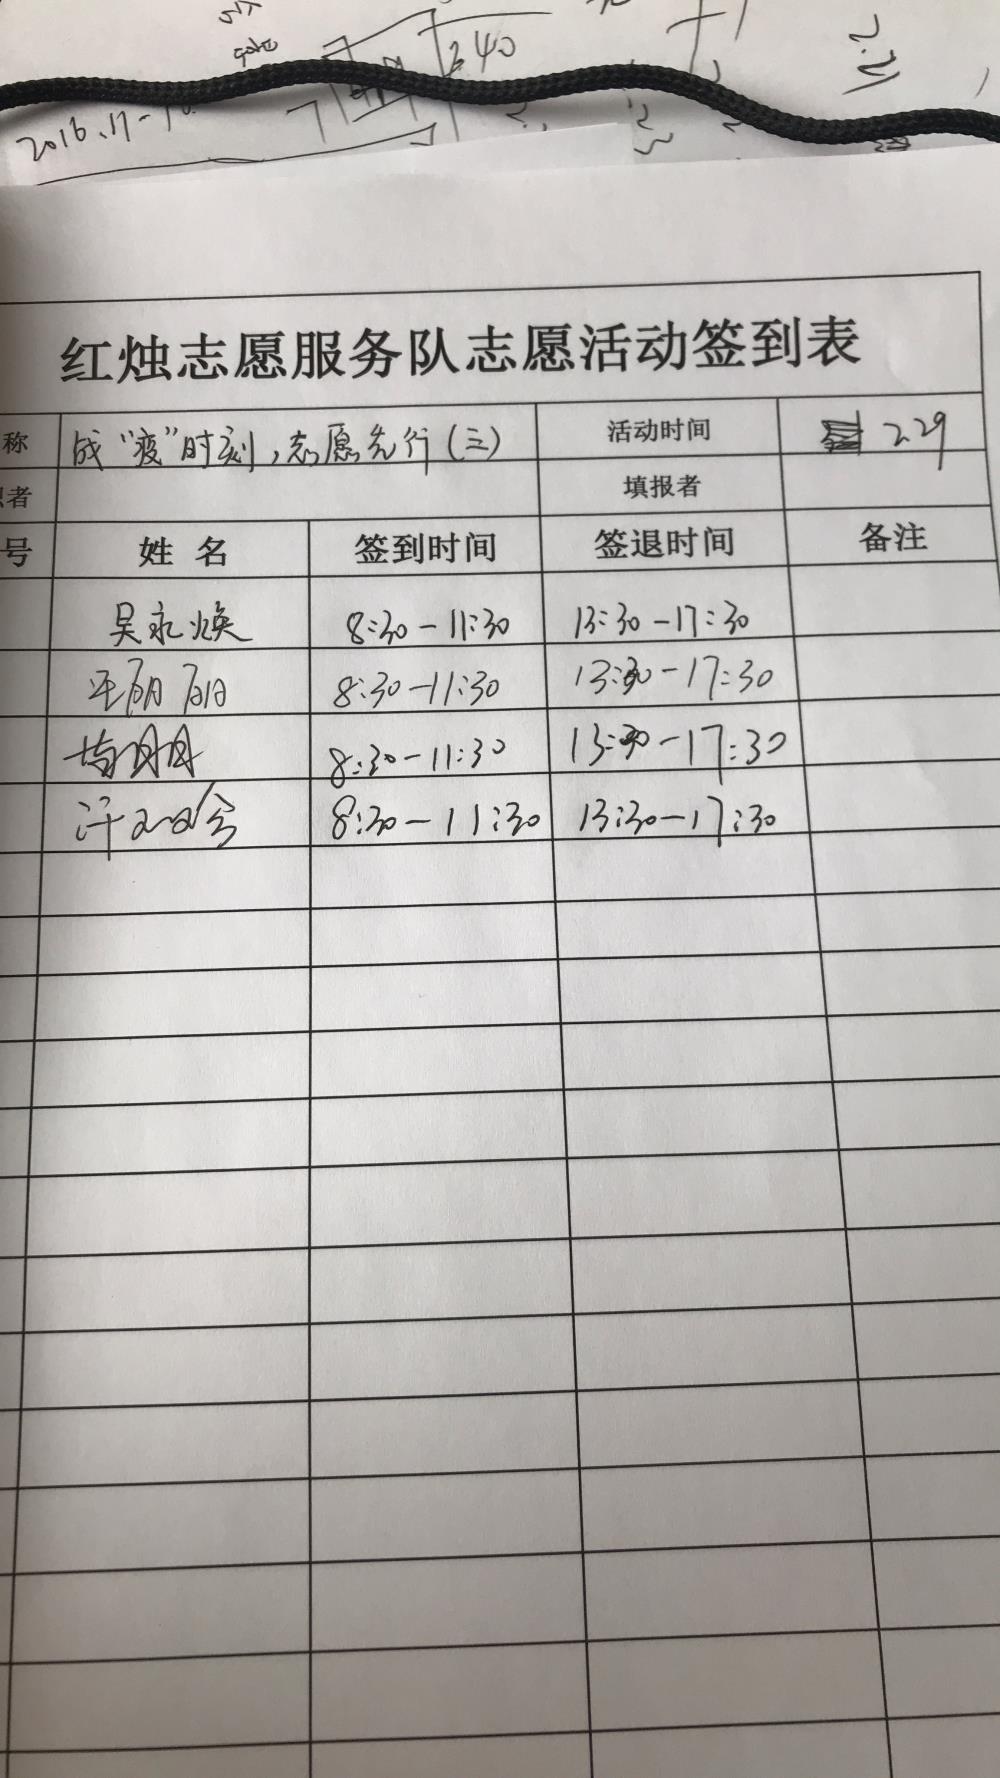 2016.11-
240
2.21
红烛志愿服务队志愿活动签到表
称 战“疫”时刻,志愿先行(三) 活动时间 2.29
者 填报者
号 姓名 签到时间 签退时间 备注
吴永焕 8:30-11:30 13:30-17:30
8:30-11:30 13:30-17:30
8:30-11:30 13:30-17:30
8:30-11:30 13:30-17:30